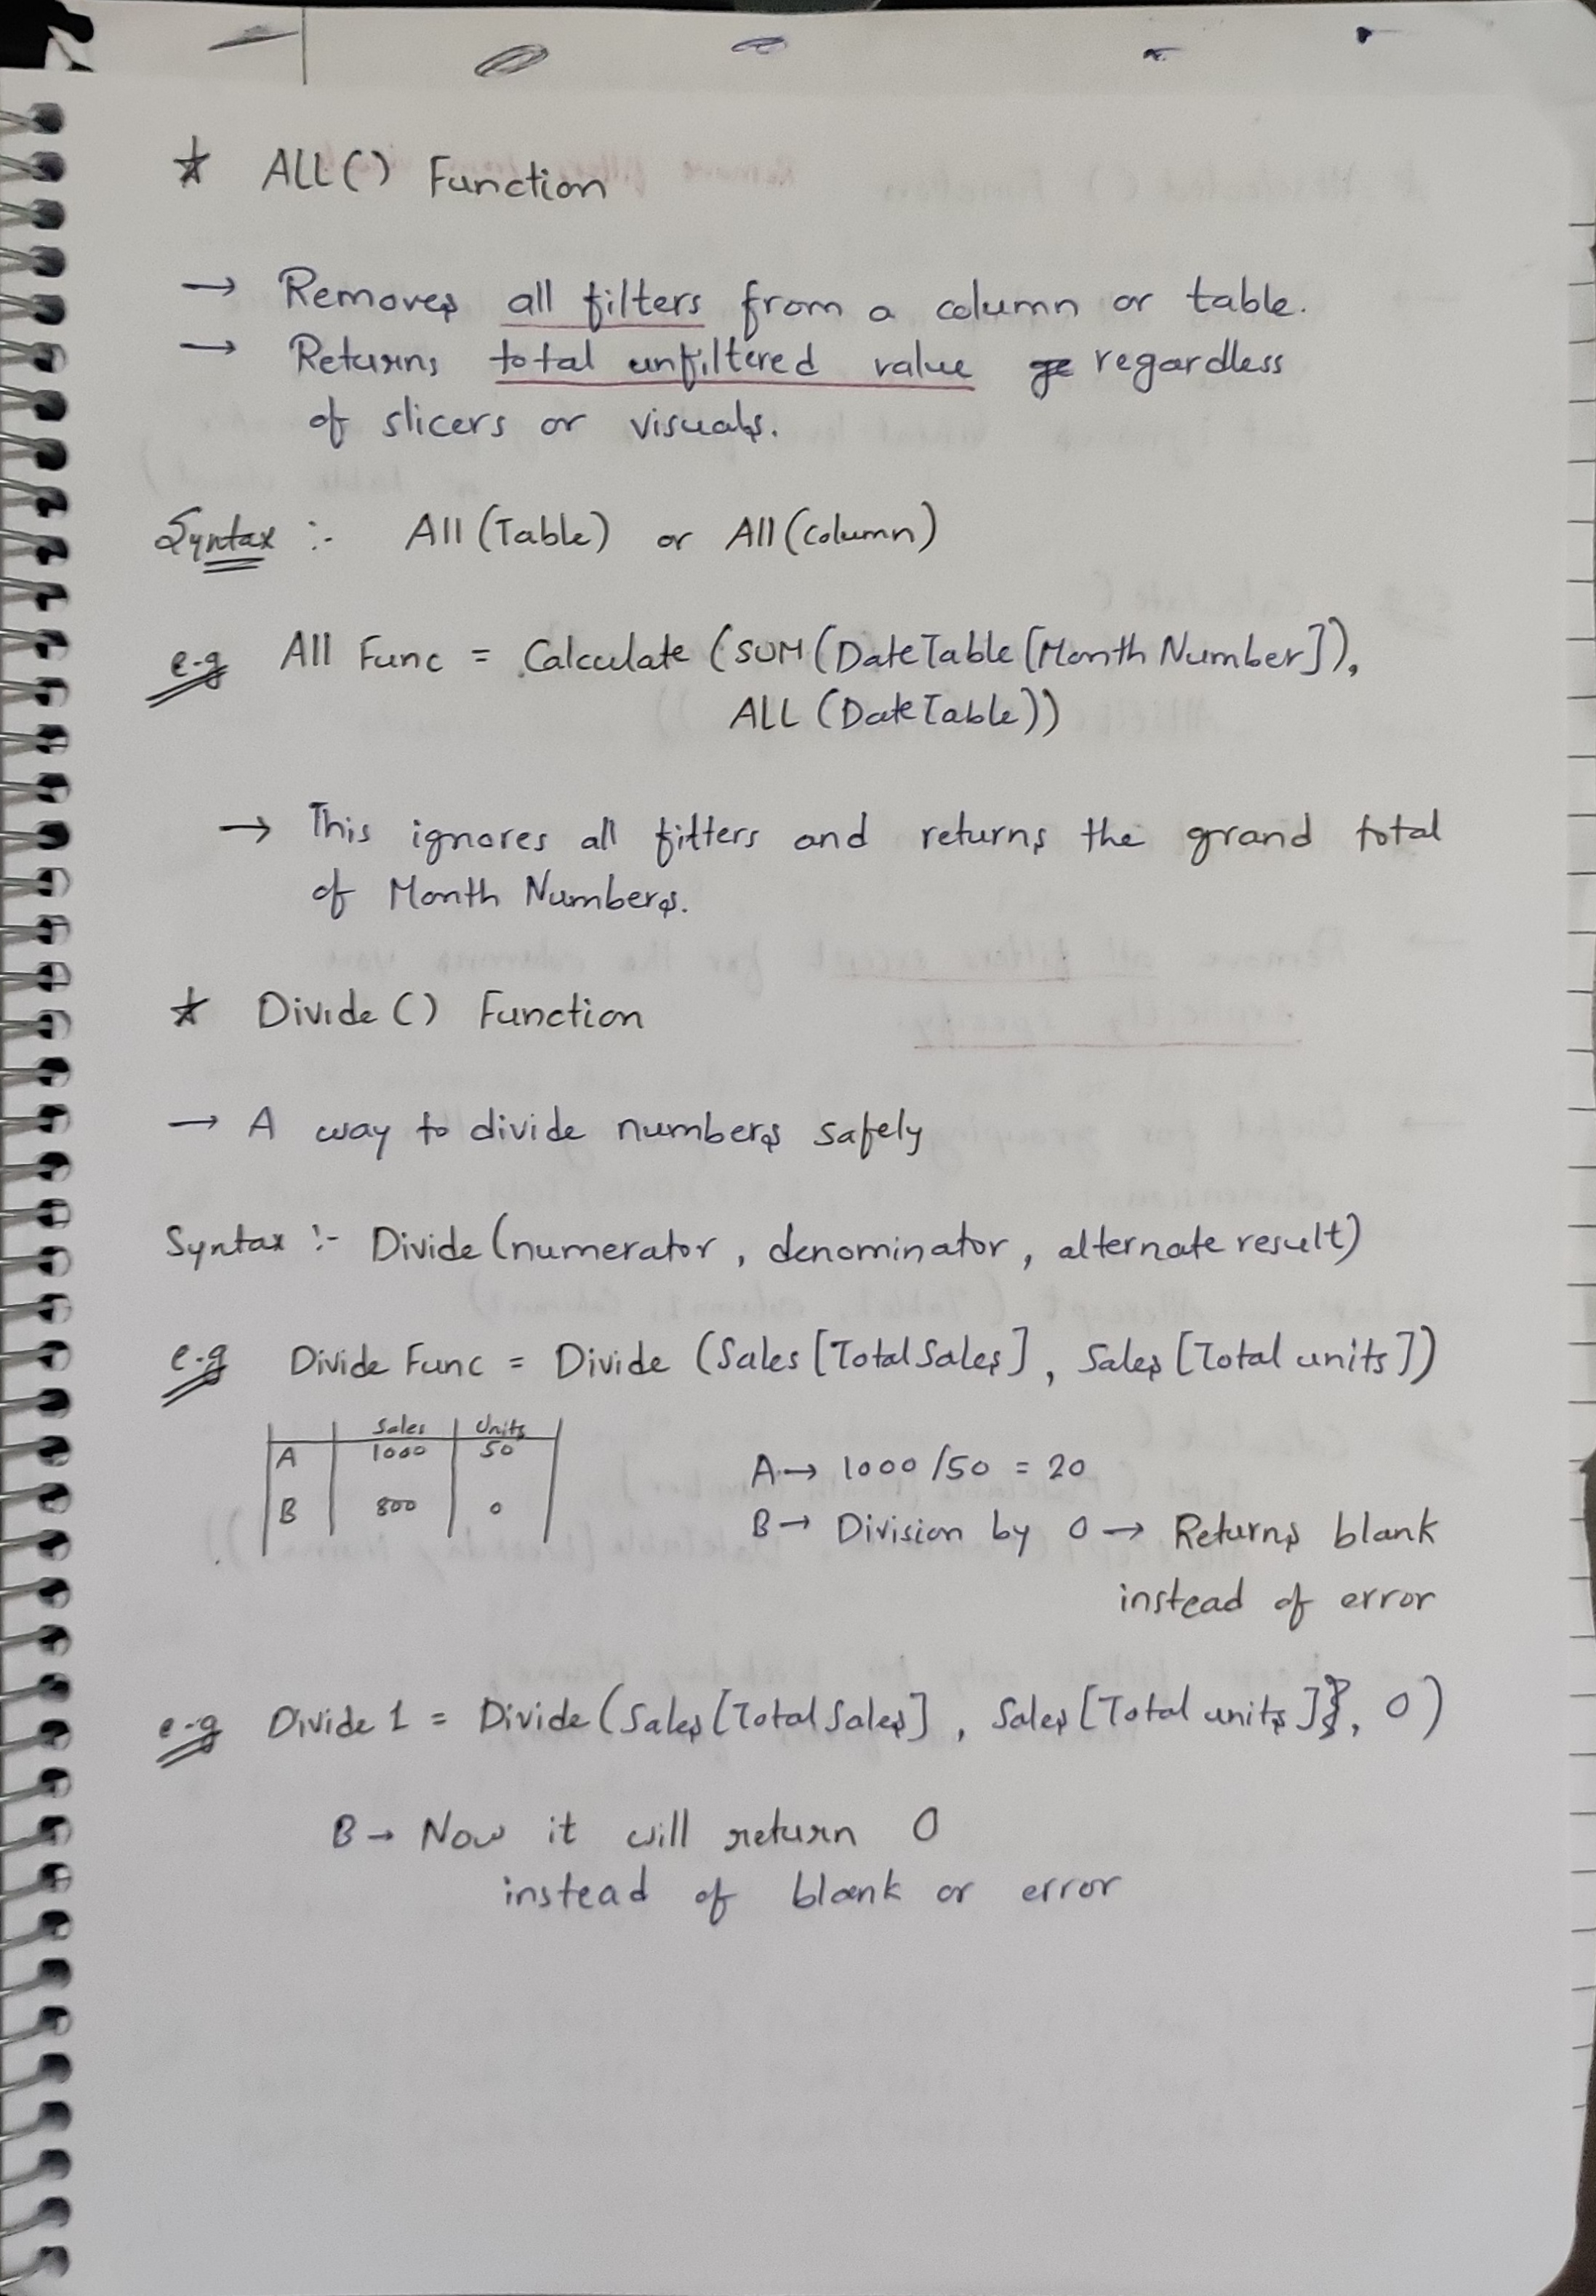 * ALL() Function
→ Removes all filters from a column or table.
→ Returns total unfiltered value regardless
of slicers or visuals.
Syntax :- All (Table) or All (Column)
e.g All Func = Calculate (SUM (DateTable [Month Number]),
ALL (DateTable))
→ This ignores all filters and returns the grand total
of Month Numbers.
* Divide () Function
→ A way to divide numbers safely
Syntax :- Divide (numerator, denominator, alternate result)
e.g Divide Func = Divide (Sales [Total Sales], Sales [Total units])
Sales Units
A 1000 50
B 800 0
A → 1000/50 = 20
B → Division by 0 → Returns blank
instead of error
e.g Divide 1 = Divide (Sales [Total Sales], Sales [Total units], 0)
B → Now it will return 0
instead of blank or error